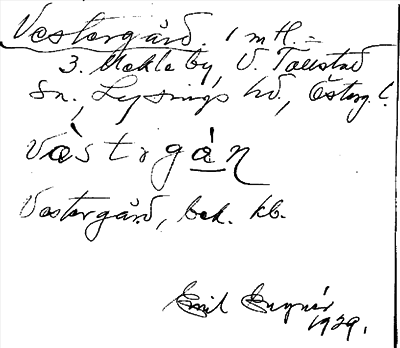 Västergård. 1 mtl. =
3. Mekleby, V. Tollstad
sn., Lysings hd., Österg. l.
väs trgán
Västergård, bek. kb.
Emil
1929.